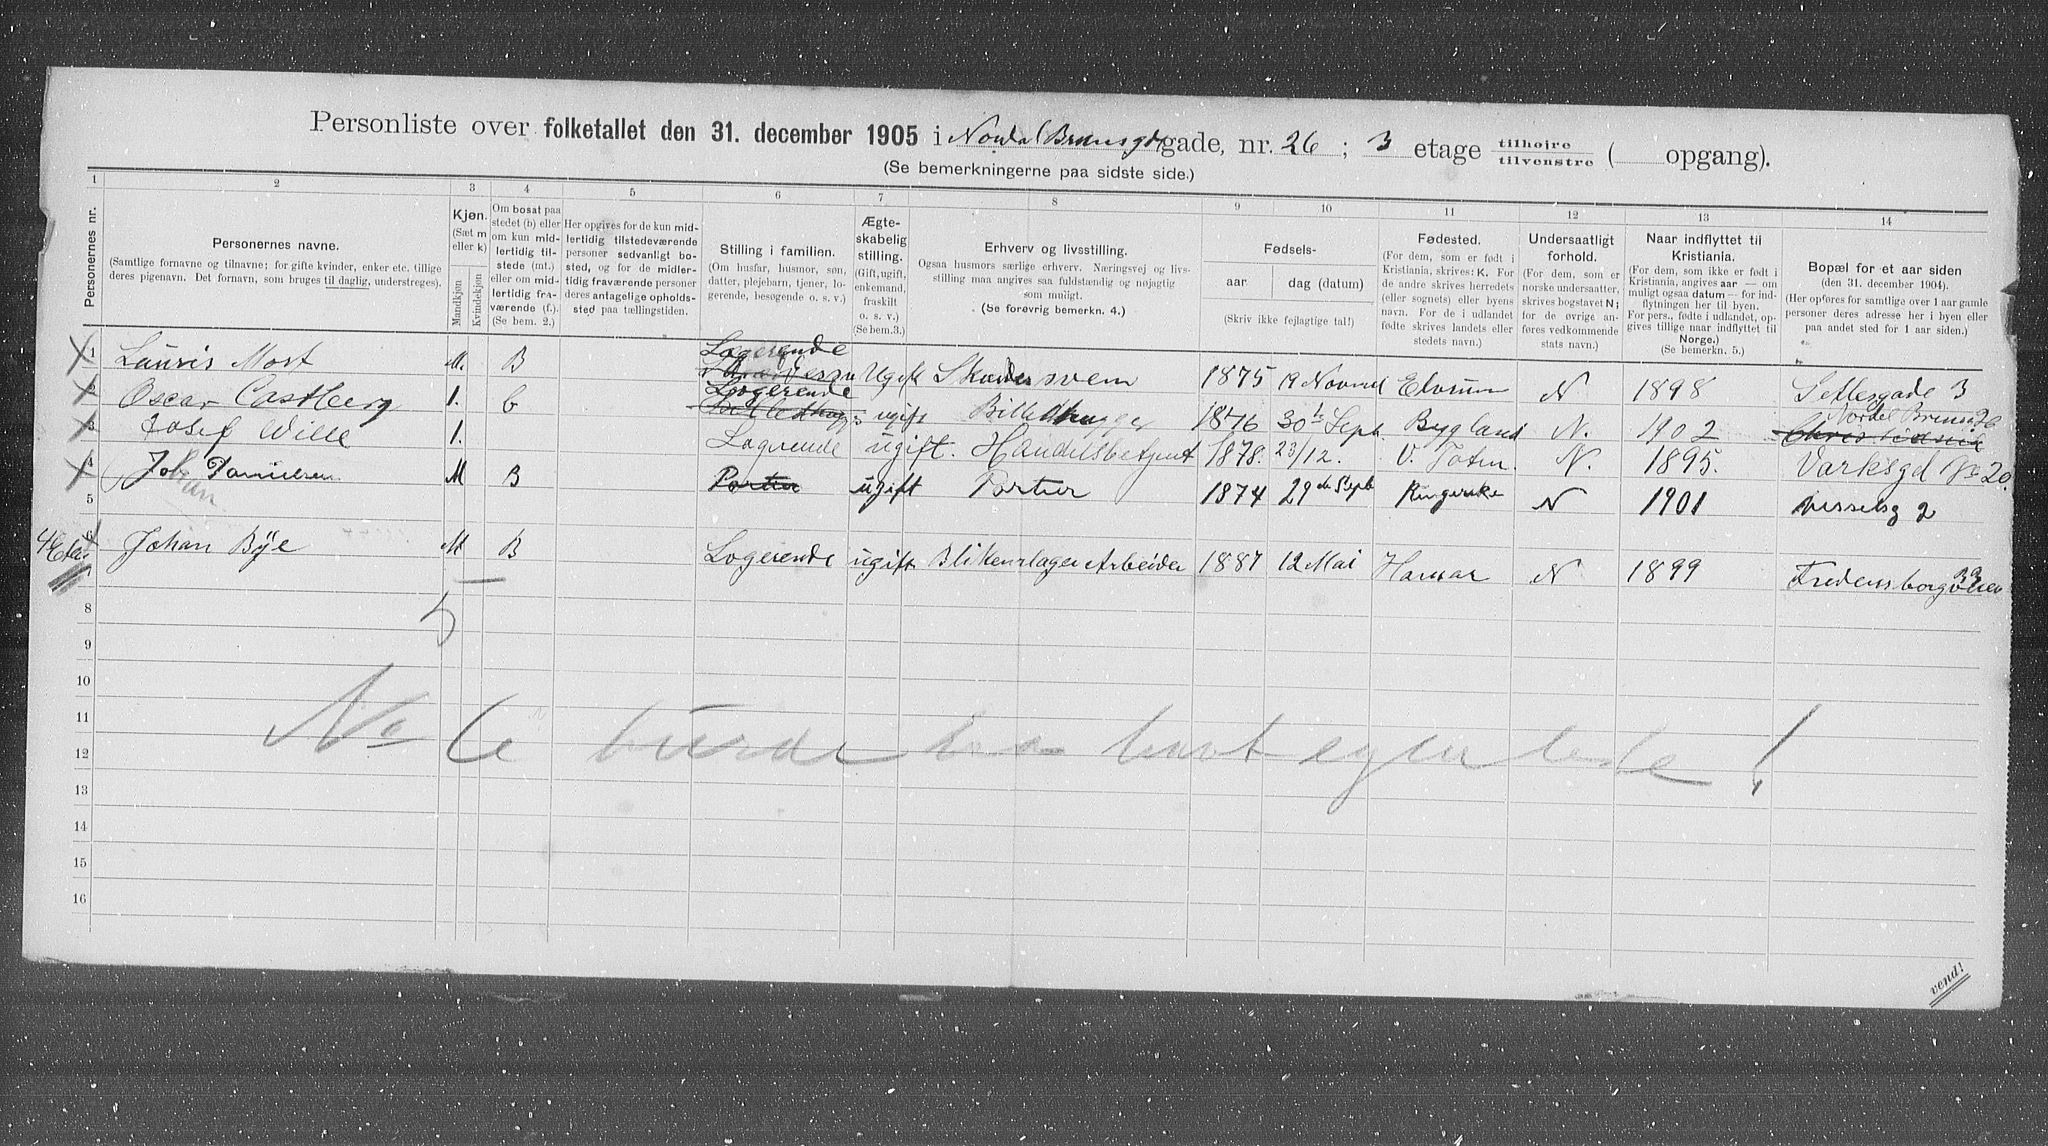 Personliste over folketallet den 31. december 1905 i Nordal Brunsgd gade, nr. 26 ; 3 etage tilhøire tilvenstre ( opgang).
(Se bemerkningerne paa sidste side.)
1 2 3 4 5 6 7 8 9 10 11 12 13 14
Personernes nr.
Personernes navne.
(Samtlige fornavne og tilnavne; for gifte kvinder, enker etc. tillige
deres pigenavn. Det fornavn, som bruges til daglig, understreges).
Kjøn.
(Sæt m
eller k)
Mandkjøn
Kvindekjøn
Om bosat paa
stedet (b) eller
om kun mid-
lertidig til-
stede (mt.)
eller om mid-
lertidig fra-
værende (f.).
(Se bem. 2.)
Her opgives for de kun mid-
lertidig tilstedeværende
personer sedvanlig bo-
sted, og for de midler-
tidig fraværende personer
deres antagelige opholds-
sted paa tællingstiden.
Stilling i familien.
(Om husfar, husmor, søn,
datter, plejebarn, tjener, lo-
gerende, besøgende o. s. v.)
Ægte-
skabelig
stilling.
(Gift, ugift,
enkemand,
fraskilt
o. s. v.)
(Se bem. 3.)
Erhverv og livsstilling.
Ogsaa husmors særlige erhverv. Næringsvej og livs-
stilling maa angives saa fuldstændig og nøjagtig
som muligt.
(Se forøvrig bemerkn. 4.)
Fødsels-
aar
dag (datum)
(Skriv ikke fejlagtige tal!)
Fødested.
(For dem, som er født i
Kristiania, skrives: K. For
de andre skrives herredets
(eller sognets) eller byens
navn. For de i udlandet
fødte skrives landets eller
stedets navn.)
Undersaatligt
forhold.
(For dem, som er
norske undersaatter,
skrives bogstavet N;
for de øvrige an-
føres vedkommende
stats navn.)
Naar indflyttet til
Kristiania.
(For dem, som ikke er født i
Kristiania, angives aar — om
muligt ogsaa datum — for ind-
flytningen her til byen. For
For pers., fødte i udlandet, op-
gives tillige naar indflyttet til
Norge.)
(Se bemerkn. 5.)
Bopæl for et aar siden
(den 31. december 1904).
(Her opføres for samtlige over 1 aar gamle
personer deres adresse her i byen eller
paa andet sted for 1 aar siden.)
1 Lauris Most M. B Logerende Ugift Skrædersvem 1875 19 Novmb Elvrum N 1898 Setlesgade 3
2 Oscar Castberg 1. b Logerende ugift Billedhugger 1876 30 Sept Bygland N. 1902 Nordal Brunsg 26
3 Josef Wille 1. Logerende ugift. Handelsbetjent 1878. 23/12. V. Toten. N. 1895. Varksgd No 20.
4 Johan Danielsen M B Portier ugift Portier 1874 29de Sept Ringerike N 1901 Nisselsg 2
5
4 Etae 6 Johan Bye M B Logerende ugift Blikenslager Arbeider 1887 12 Mai Hamar N 1899 Fredensborgveien
7
5
8
9
10
11
No 6 burde ha havt egen liste!
12
13
14
15
16
vend!